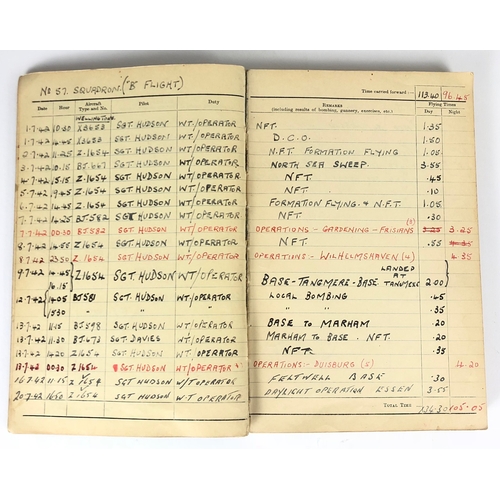 No 57. SQUADRON. ("B" FLIGHT)
Date Hour Aircraft Type and No. Pilot Duty
WELLINGTON
1·7·42 10·30 X3653 SGT. HUDSON WT/OPERATOR
1·7·42 X3653 SGT. HUDSON WT/OPERATOR
2·7·42 11·25 Z.1654 SGT. HUDSON WT/OPERATOR
3·7·42 10·15 SGT. HUDSON WT/OPERATOR
4·7·42 15·15 Z.1654 SGT HUDSON WT/OPERATOR
5·7·42 Z.1654 SGT HUDSON WT/OPERATOR
6·7·42 Z.1654 SGT. HUDSON WT/OPERATOR
7·7·42 14·25 BJ.582 SGT HUDSON WT/OPERATOR
7·7·42 00·30 BJ.582 SGT. HUDSON WT/OPERATOR
8·7·42 Z.1654 SGT. HUDSON WT/OPERATOR
8·7·42 23·50 Z.1654 SGT. HUDSON WT/OPERATOR
9·7·42 14·45 Z1654 SGT. HUDSON WT/OPERATOR
16.15
12·7·42 14·05 BJ581 SGT. HUDSON WT/OPERATOR
1530 " " "
13·7·42 11·15 BJ598 SGT. HUDSON WT/OPERATOR
13·7·42 11·30 BJ.673 SGT. DAVIES WT/OPERATOR
13·7·42 14·20 Z.1654 SGT. HUDSON WT/OPERATOR
13·7·42 00·30 Z.1654 SGT HUDSON WT/OPERATOR
16·7·42 11·15 Z.1654 SGT HUDSON W/T OPERATOR
20·7·42 1650 Z1654 SGT HUDSON W.T OPERATOR
Time carried forward:— 113.40 96.45
REMARKS Flying Times
(Including results of bombing, gunnery, exercises, etc.) Day Night
NFT. 1·35
D.C.O. 1·50
N.F.T. FORMATION FLYING 1·05
NORTH SEA SWEEP. 3·55
NFT. ·45
NFT. ·10
FORMATION FLYING & N.F.T. 1·05
NFT ·30
OPERATIONS - GARDENING - FRISIANS (3) 3·25
NFT. ·55
OPERATIONS - WILHELMSHAVEN (4) 4·35
LANDED AT
BASE-TANGMERE-BASE TANGMERE 2·00
LOCAL BOMBING ·45
" " ·35
BASE TO MARHAM ·20
MARHAM TO BASE. NFT. ·20
NFT. ·35
OPERATIONS - DUISBURG (5) 4·20
FELTWELL BASE ·30
DAYLIGHT OPERATION ESSEN 3·55
TOTAL TIME 105·05